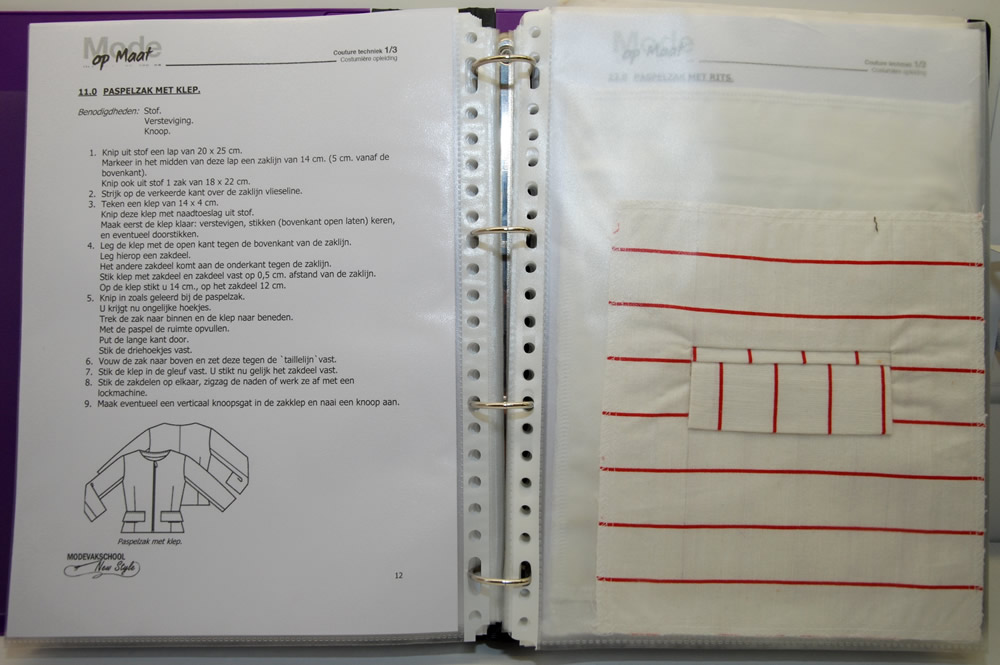 Mode
op Maat
Couture techniek 1/3
Costumière opleiding
11.0 PASPELZAK MET KLEP.
Benodigdheden: Stof.
Versteviging.
Knoop.
1. Knip uit stof een lap van 20 x 25 cm.
Markeer in het midden van deze lap een zaklijn van 14 cm. (5 cm. vanaf de
bovenkant).
Knip ook uit stof 1 zak van 18 x 22 cm.
2. Strijk op de verkeerde kant over de zaklijn vlieseline.
3. Teken een klep van 14 x 4 cm.
Knip deze klep met naadtoeslag uit stof.
Maak eerst de klep klaar: verstevigen, stikken (bovenkant open laten) keren,
en eventueel doorstikken.
4. Leg de klep met de open kant tegen de bovenkant van de zaklijn.
Leg hierop een zakdeel.
Het andere zakdeel komt aan de onderkant tegen de zaklijn.
Stik klep met zakdeel en zakdeel vast op 0,5 cm. afstand van de zaklijn.
Op de klep stikt u 14 cm., op het zakdeel 12 cm.
5. Knip in zoals geleerd bij de paspelzak.
U krijgt nu ongelijke hoekjes.
Trek de zak naar binnen en de klep naar beneden.
Met de paspel de ruimte opvullen.
Put de lange kant door.
Stik de driehoekjes vast.
6. Vouw de zak naar boven en zet deze tegen de `taillelijn` vast.
7. Stik de klep in de gleuf vast. U stikt nu gelijk het zakdeel vast.
8. Stik de zakdelen op elkaar, zigzag de naden of werk ze af met een
lockmachine.
9. Maak eventueel een verticaal knoopsgat in de zakklep en naai een knoop aan.
Paspelzak met klep.
MODEVAKSCHOOL
New Style
12
Mode
op Maat
Couture techniek 1/3
Costumière opleiding
11.0 PASPELZAK MET RITS.